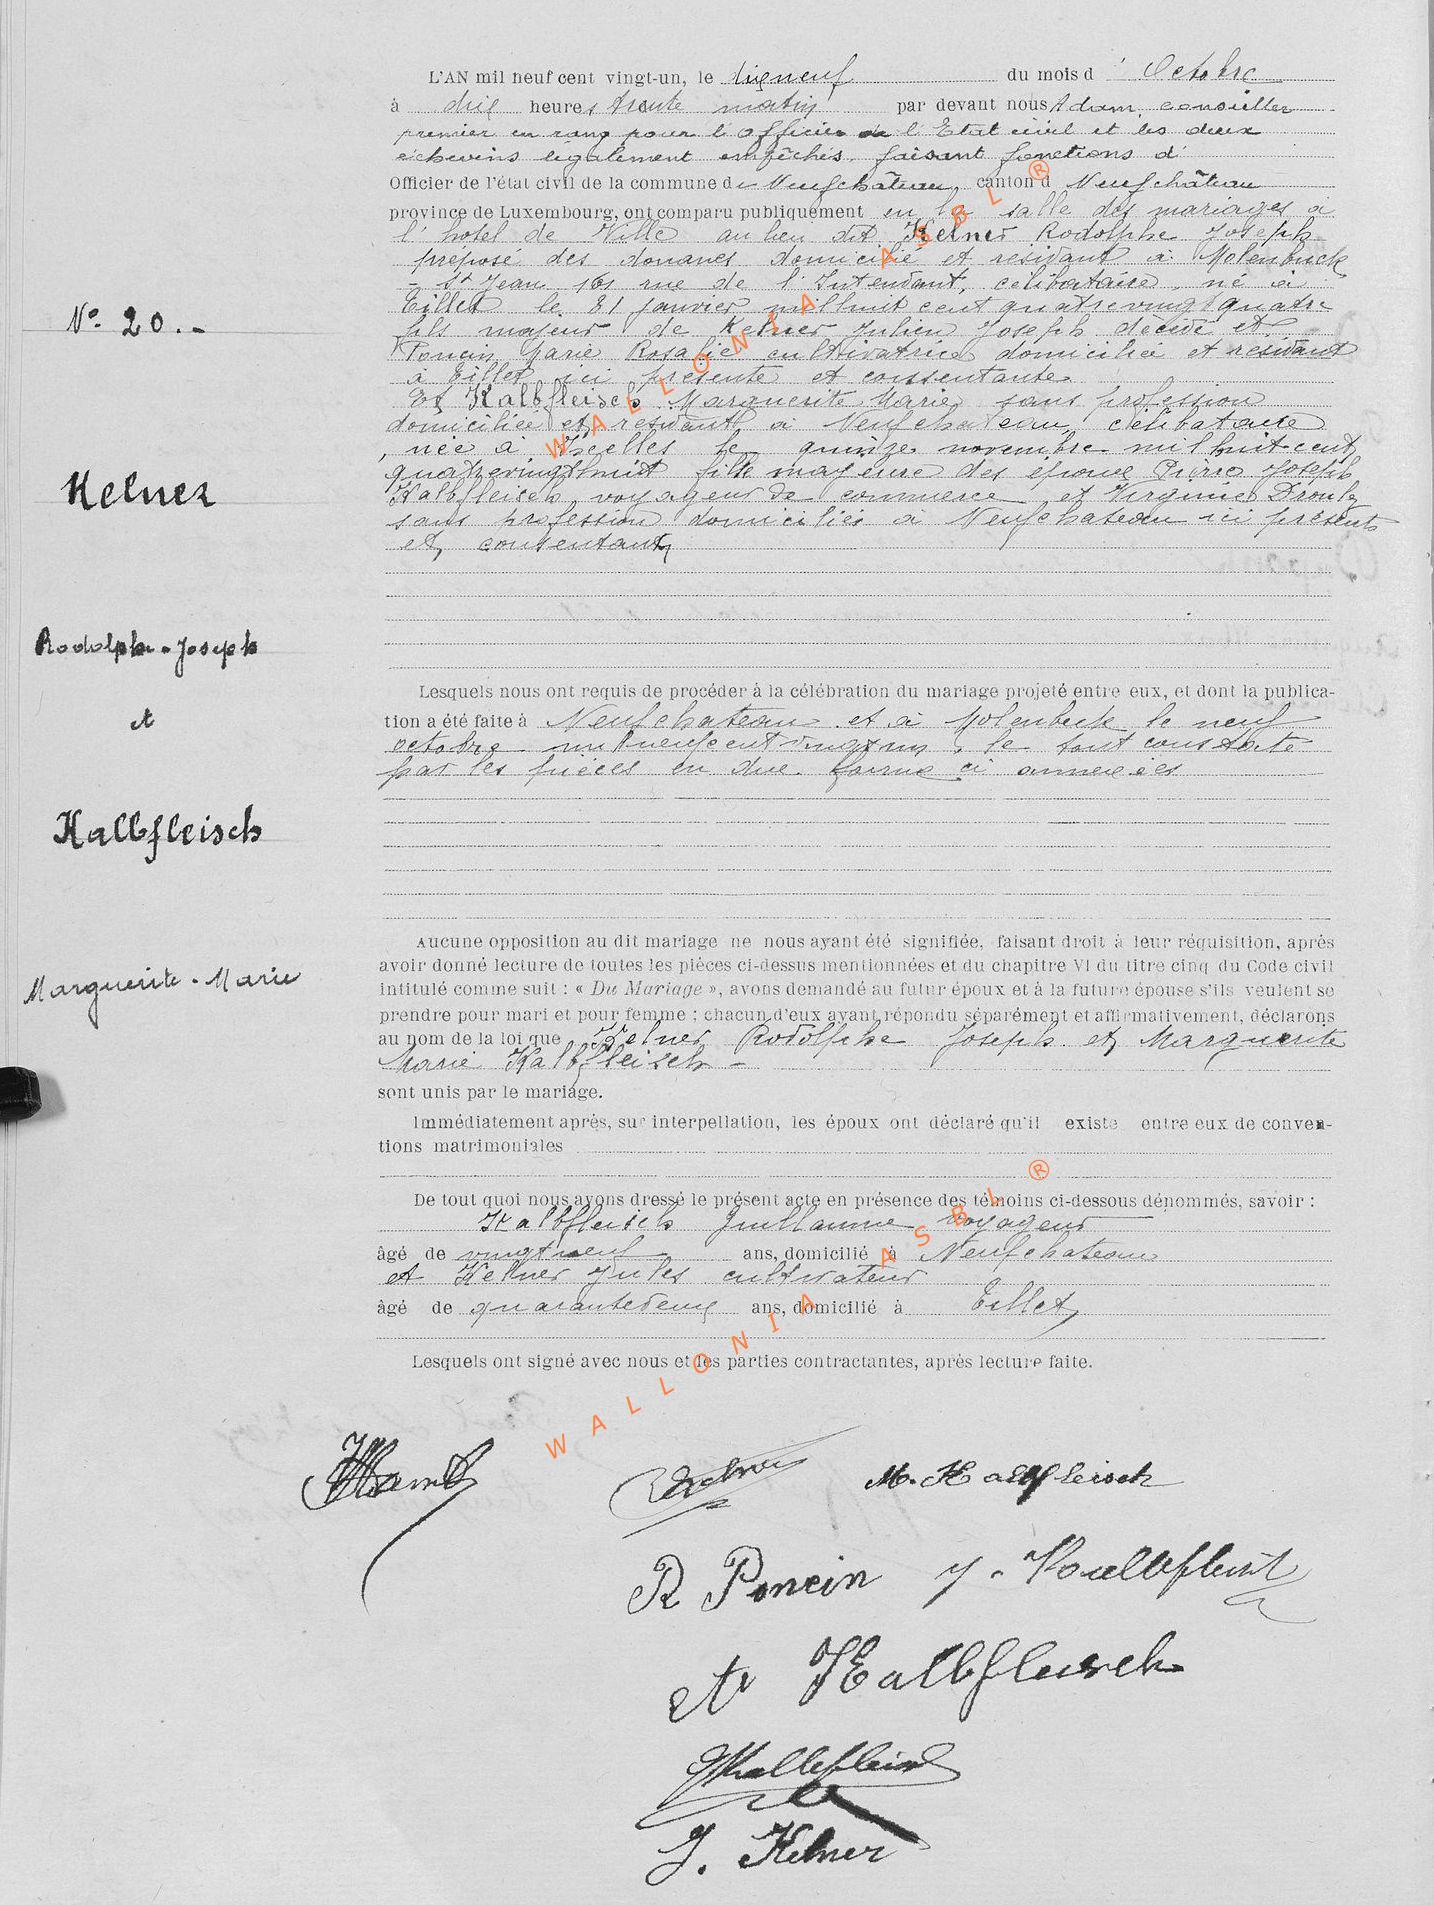 L'AN mil neuf cent vingt-un, le dixneuf du mois d' Octobre
à dix heures trente matin par devant nous Adam, conseiller
premier en rang pour l'officier de l'Etat civil et les deux
échevins légalement empêchés, faisant fonctions d'
Officier de l'état civil de la commune de Neufchâteau, canton d Neufchâteau
province de Luxembourg, ont comparu publiquement en la salle des mariages à
l'hotel de Ville au lieu dit Kelner Rodolphe Joseph
préposé des douanes domicilié et résidant à Molenbeek
- St Jean 161 rue de l'Intendant, célibataire, né à
Tillet le 31 janvier mil huit cent quatre vingt quatre
fils majeur de Kelner Julien Joseph décédé et
Poncin Marie Rosalie cultivatrice domiciliée et résidant
à Tillet ici présente et consentante
Et Kalbfleisch Marguerite Marie sans profession
domiciliée et résidant à Neufchateau célibataire
, née à Ixelles le quinze novembre mil huit cent
quatrevingthuit fille majeure des époux Pierre Joseph
Kalbfleisch voyageur de commerce et Virginie
sans profession domiciliés à Neufchateau ici présents
et consentants
N° 20.-
Kelner
Rodolphe-Joseph
et
Kalbfleisch
Marguerite-Marie
Lesquels nous ont requis de procéder à la célébration du mariage projeté entre eux, et dont la publica-
tion a été faite à Neufchateau et à Molenbeek le neuf
octobre mil neuf cent vingt un, le tout constaté
par les pièces en due forme ci annexées
Aucune opposition au dit mariage ne nous ayant été signifiée, faisant droit à leur réquisition, après
avoir donné lecture de toutes les pièces ci-dessus mentionnées et du chapitre VI du titre cinq du Code civil
intitulé comme suit : « Du Mariage », avons demandé au futur époux et à la future épouse s'ils veulent se
prendre pour mari et pour femme ; chacun d'eux ayant répondu séparément et affirmativement, déclarons
au nom de la loi que Kelner Rodolphe Joseph et Marguerite
Marie Kalbfleisch -
sont unis par le mariage.
Immédiatement après, sur interpellation, les époux ont déclaré qu'il existe entre eux de conven-
tions matrimoniales
De tout quoi nous avons dressé le présent acte en présence des témoins ci-dessous dénommés, savoir :
Kalbfleisch Guillaume voyageur
âgé de vingtneuf ans, domicilié à Neufchateau
et Kelner Jules cultivateur
âgé de quarantedeux ans, domicilié à Tillet
Lesquels ont signé avec nous et les parties contractantes, après lecture faite.
Kelner M. Kalbfleisch
R Poncin J. Kalbfleisch
Kalbfleisch
GKalbfleisch
J. Kelner
WALLONIA ASBL ®
WALLONIA ASBL ®